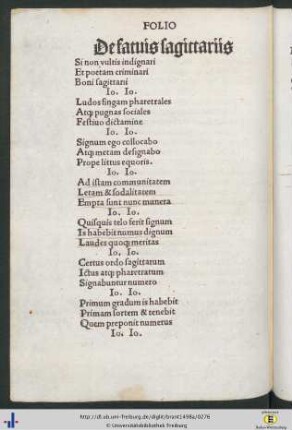 FOLIO
De fatuis sagittariis
Si non vultis indignari
Et poetam criminari
Boni sagittarii
Io. Io.
Ludos fingam pharetrales
Atq; pugnas sociales
Festiuo dictamine
Io. Io.
Signum ego collocabo
Atq; metam designabo
Prope littus equoris.
Io. Io.
Ad istam communitatem
Letam & sodalitatem
Empta sunt nunc munera
Io. Io.
Quisquis telo ferit signum
Is habebit numus dignum
Laudes quoq; meritas
Io. Io.
Certus ordo sagittarum
Ictus atq; pharetratum
Signabuntur numero
Io. Io.
Primum gradum is habebit
Primam sortem & tenebit
Quem preponit numerus
Io. Io.
http://dl.ub.uni-freiburg.de/diglit/brant1498a/0276
© Universitätsbibliothek Freiburg